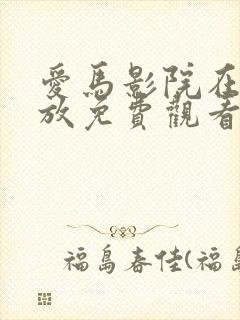 愛馬影院在
放免費觀看
福島春佳(福島